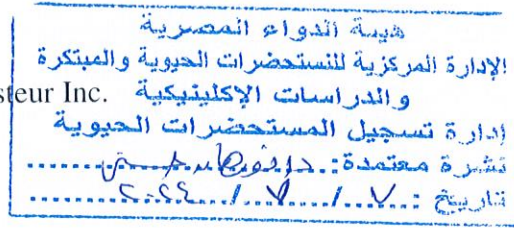 هيئة الدواء المصرية
الإدارة المركزية للمستحضرات الحيوية والمبتكرة
والدراسات الإكلينيكية
steur Inc.
إدارة تسجيل المستحضرات الحيوية
نشرة معتمدة:
تاريخ: ٧ / ٧ / ٢٠٢٤